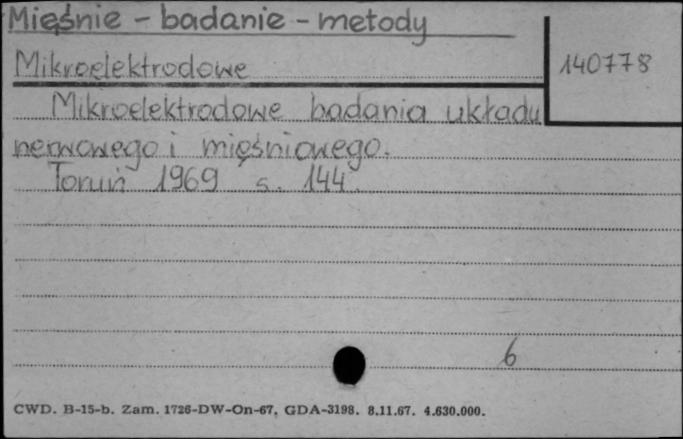 Mięśnie - badanie - metody
Mikroelektrodowe
140778
Mikroelektrodowe badania układu
nerwowego i mięśniowego.
Toruń 1969 s. 144.
6
CWD. B-15-b. Zam. 1726-DW-On-67. GDA-3198. 8.11.67. 4.630.000.